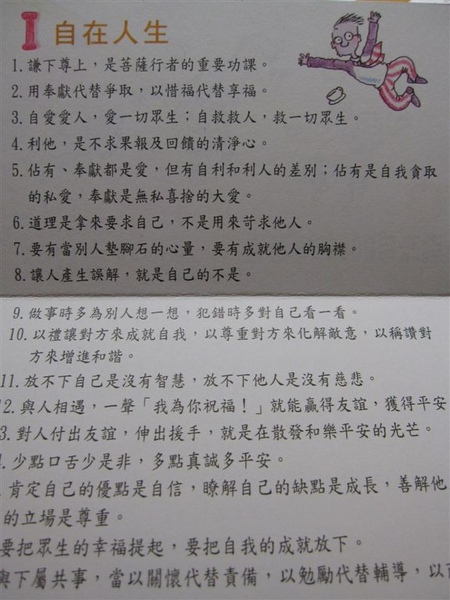 I 自在人生
1.謙下尊上,是菩薩行者的重要功課。
2.用奉獻代替爭取,以惜福代替享福。
3.自愛愛人,愛一切眾生;自救救人,救一切眾生。
4.利他,是不求果報及回饋的清淨心。
5.佔有、奉獻都是愛,但有自利和利人的差別;佔有是自我貪取
的私愛,奉獻是無私喜捨的大愛。
6.道理是拿來要求自己,不是用來苛求他人。
7.要有當別人墊腳石的心量,要有成就他人的胸襟。
8.讓人產生誤解,就是自己的不是。
9.做事時多為別人想一想,犯錯時多對自己看一看。
10.以禮讓對方來成就自我,以尊重對方來化解敵意,以稱讚對
方來增進和諧。
11.放不下自己是沒有智慧,放不下他人是沒有慈悲。
2.與人相遇,一聲「我為你祝福!」就能贏得友誼,獲得平安
3.對人付出友誼,伸出援手,就是在散發和樂平安的光芒。
4.少點口舌少是非,多點真誠多平安。
.肯定自己的優點是自信,瞭解自己的缺點是成長,善解他
的立場是尊重。
要把眾生的幸福提起,要把自我的成就放下。
與下屬共事,當以關懷代替責備,以勉勵代替輔導,以